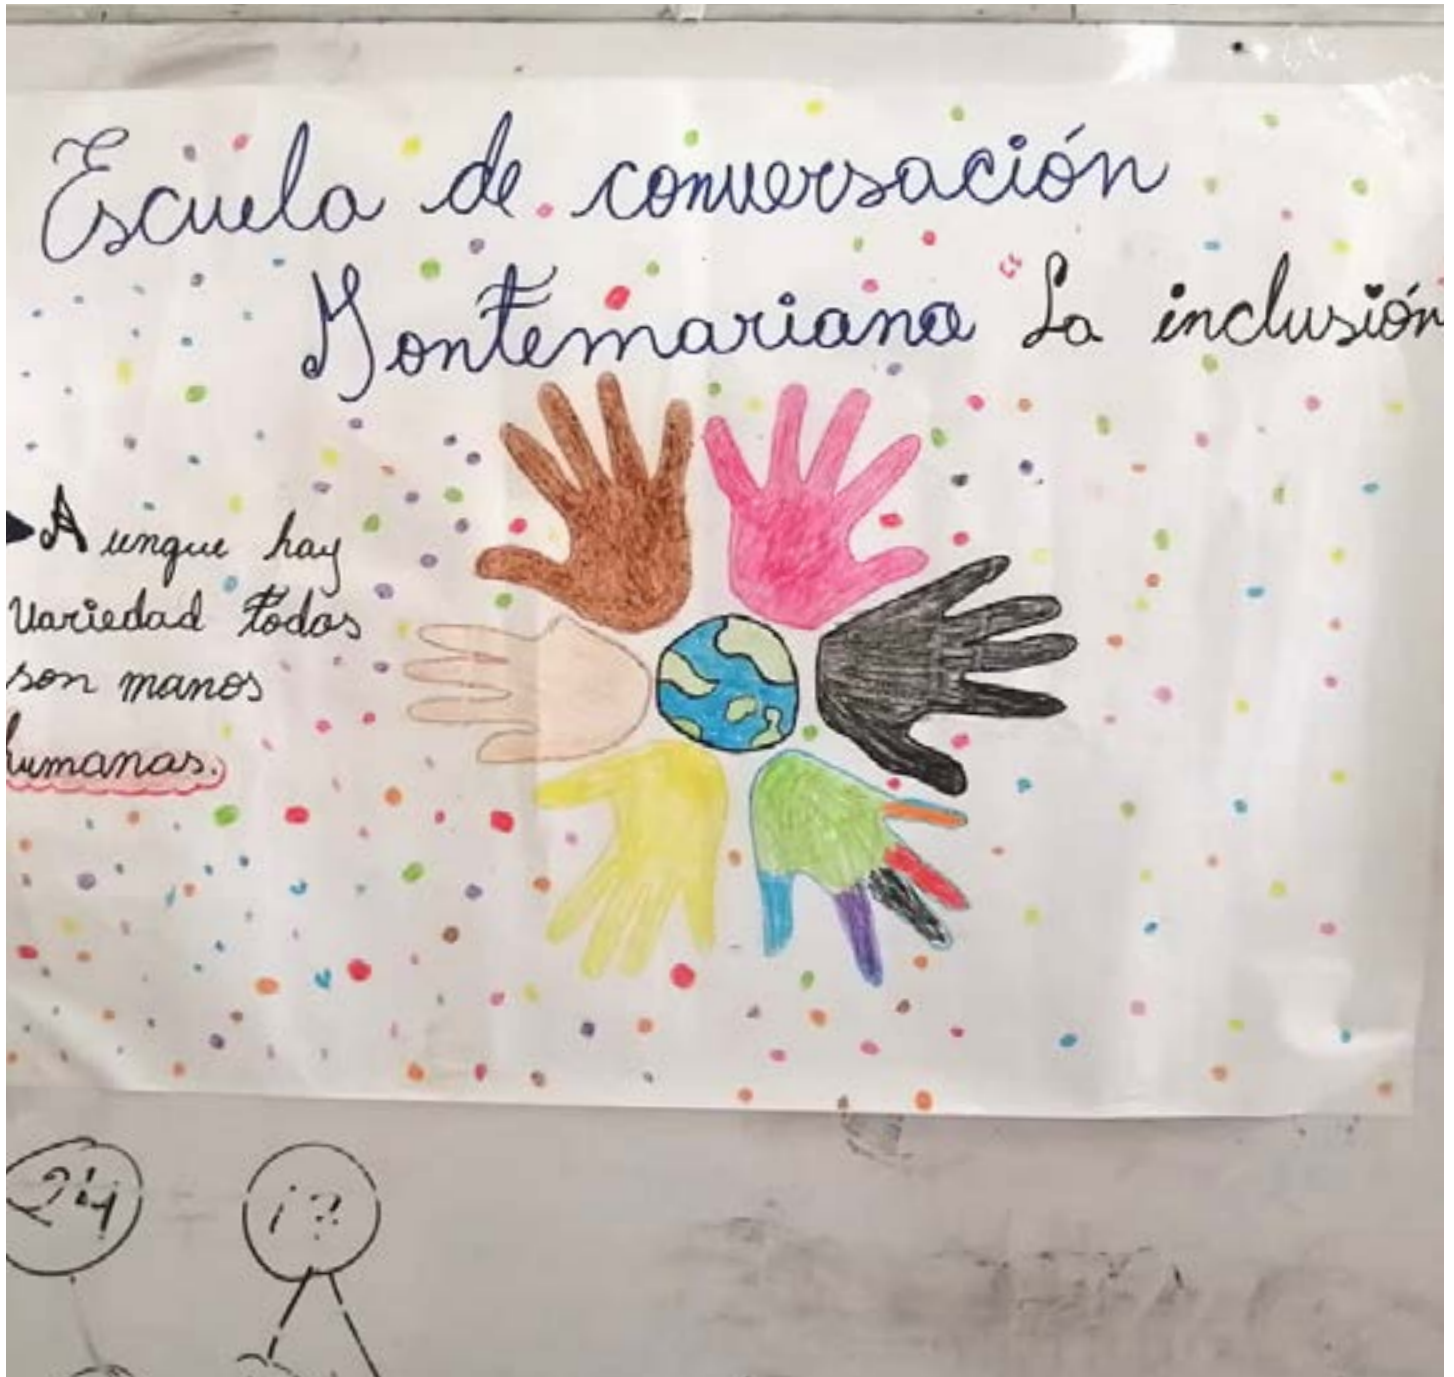 Escuela de conversación
Montemariana "La inclusión
Aunque hay
variedad todas
son manos
humanas.
24 i?